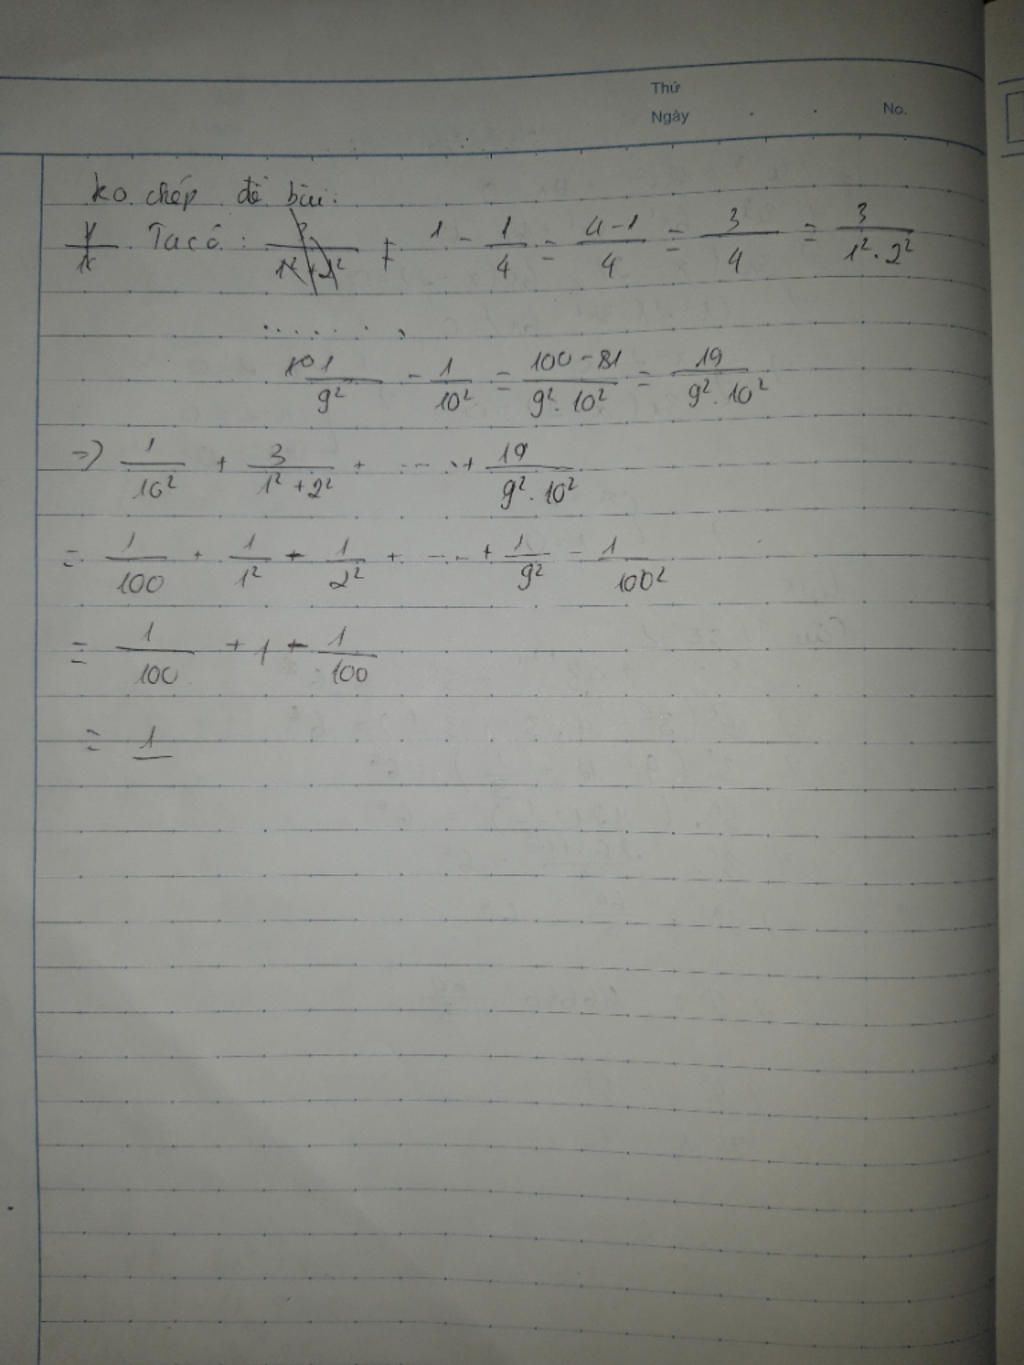 Thứ
Ngày . . No.
ko chép đề bài:
Ta có: 1 - 1/4 = 4-1/4 = 3/4 = 3/1².2²
.......
1/9² - 1/10² = 100-81/9².10² = 19/9².10²
=> 1/10² + 3/1²+2² + ... + 19/9².10²
= 1/100 + 1/1² - 1/2² + ... + 1/9² - 1/100²
= 1/100 + 1 - 1/100
= 1